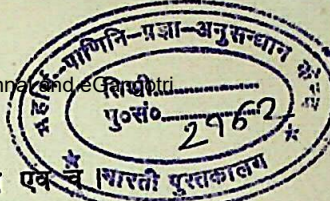 पाणिनि-प्रज्ञा-अनुसन्धान
nnai and eGangotri
तिथि
पु०सं० 2962
एव च ।
भारती पुस्तकालय